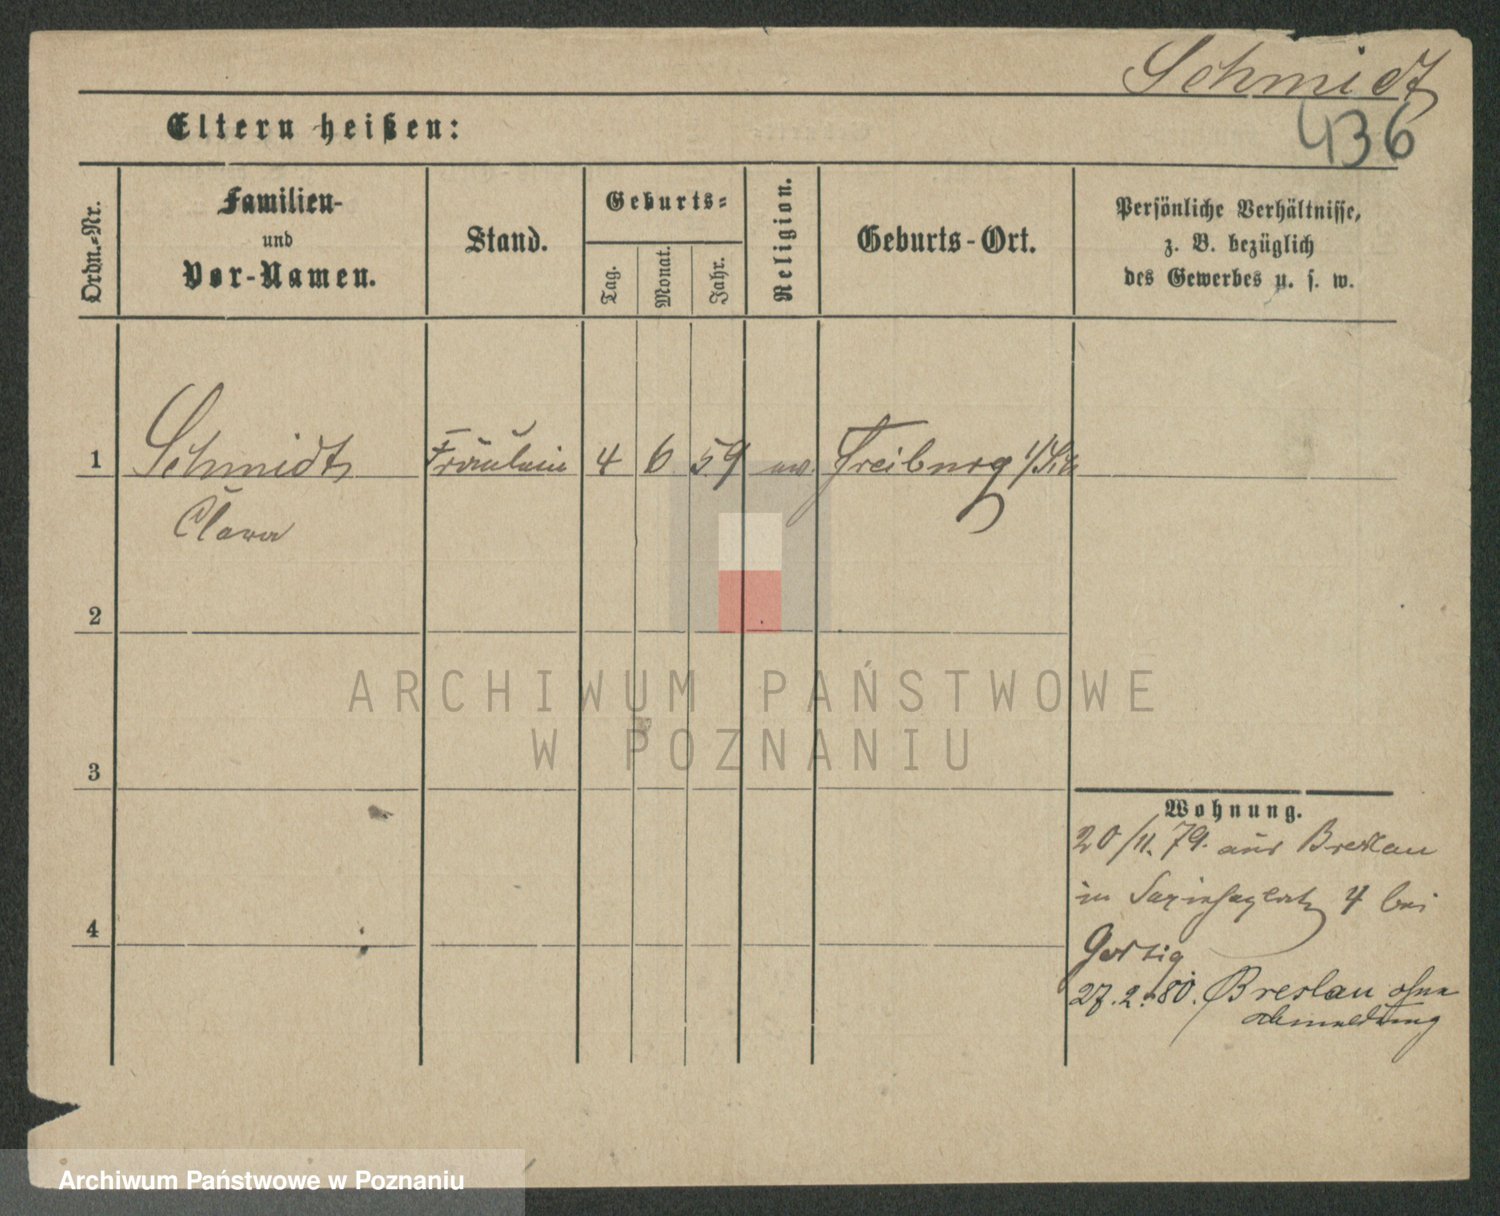 Schmidt
436
Eltern heißen:
Ordn.-Nr.
Familien-
und
Vor-Namen.
Stand.
Geburts-
Tag.
Monat.
Jahr.
Religion.
Geburts-Ort.
Persönliche Verhältnisse,
z. B. bezüglich
des Gewerbes u. s. w.
1
Schmidt
Fräulein
4
6
59
ev.
Freiburg i/Sch
Clara
2
3
4
Wohnung.
20/11. 79. aus Breslau
in 4 bei
27.2.80. Breslau ohne
Abmeldung
ARCHIWUM PAŃSTWOWE
W POZNANIU
Archiwum Państwowe w Poznaniu